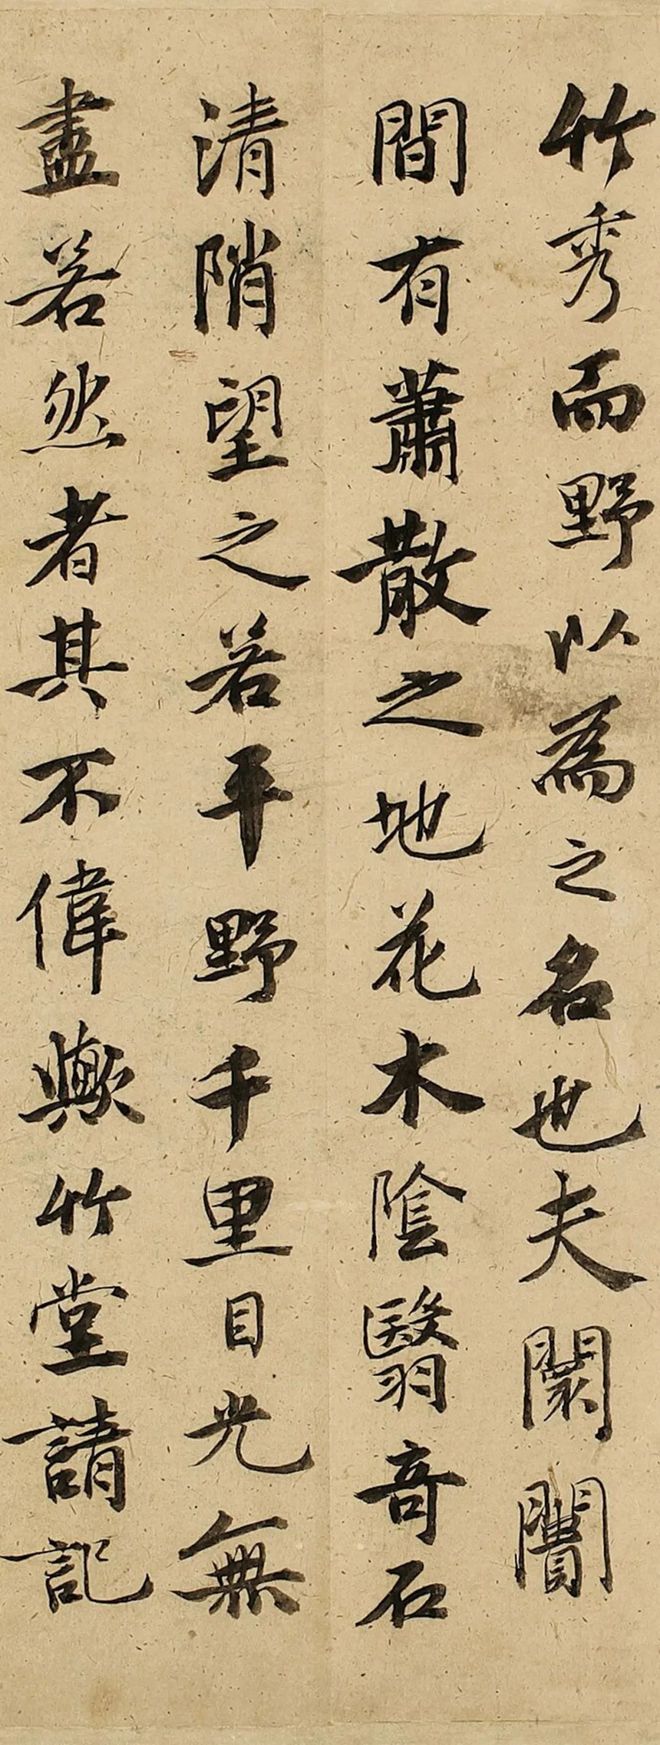 竹秀而野以為之名也夫闤闠
間有蕭散之地花木陰翳奇石
清陗望之若平野千里目光無
盡若然者其不偉歟竹堂請記